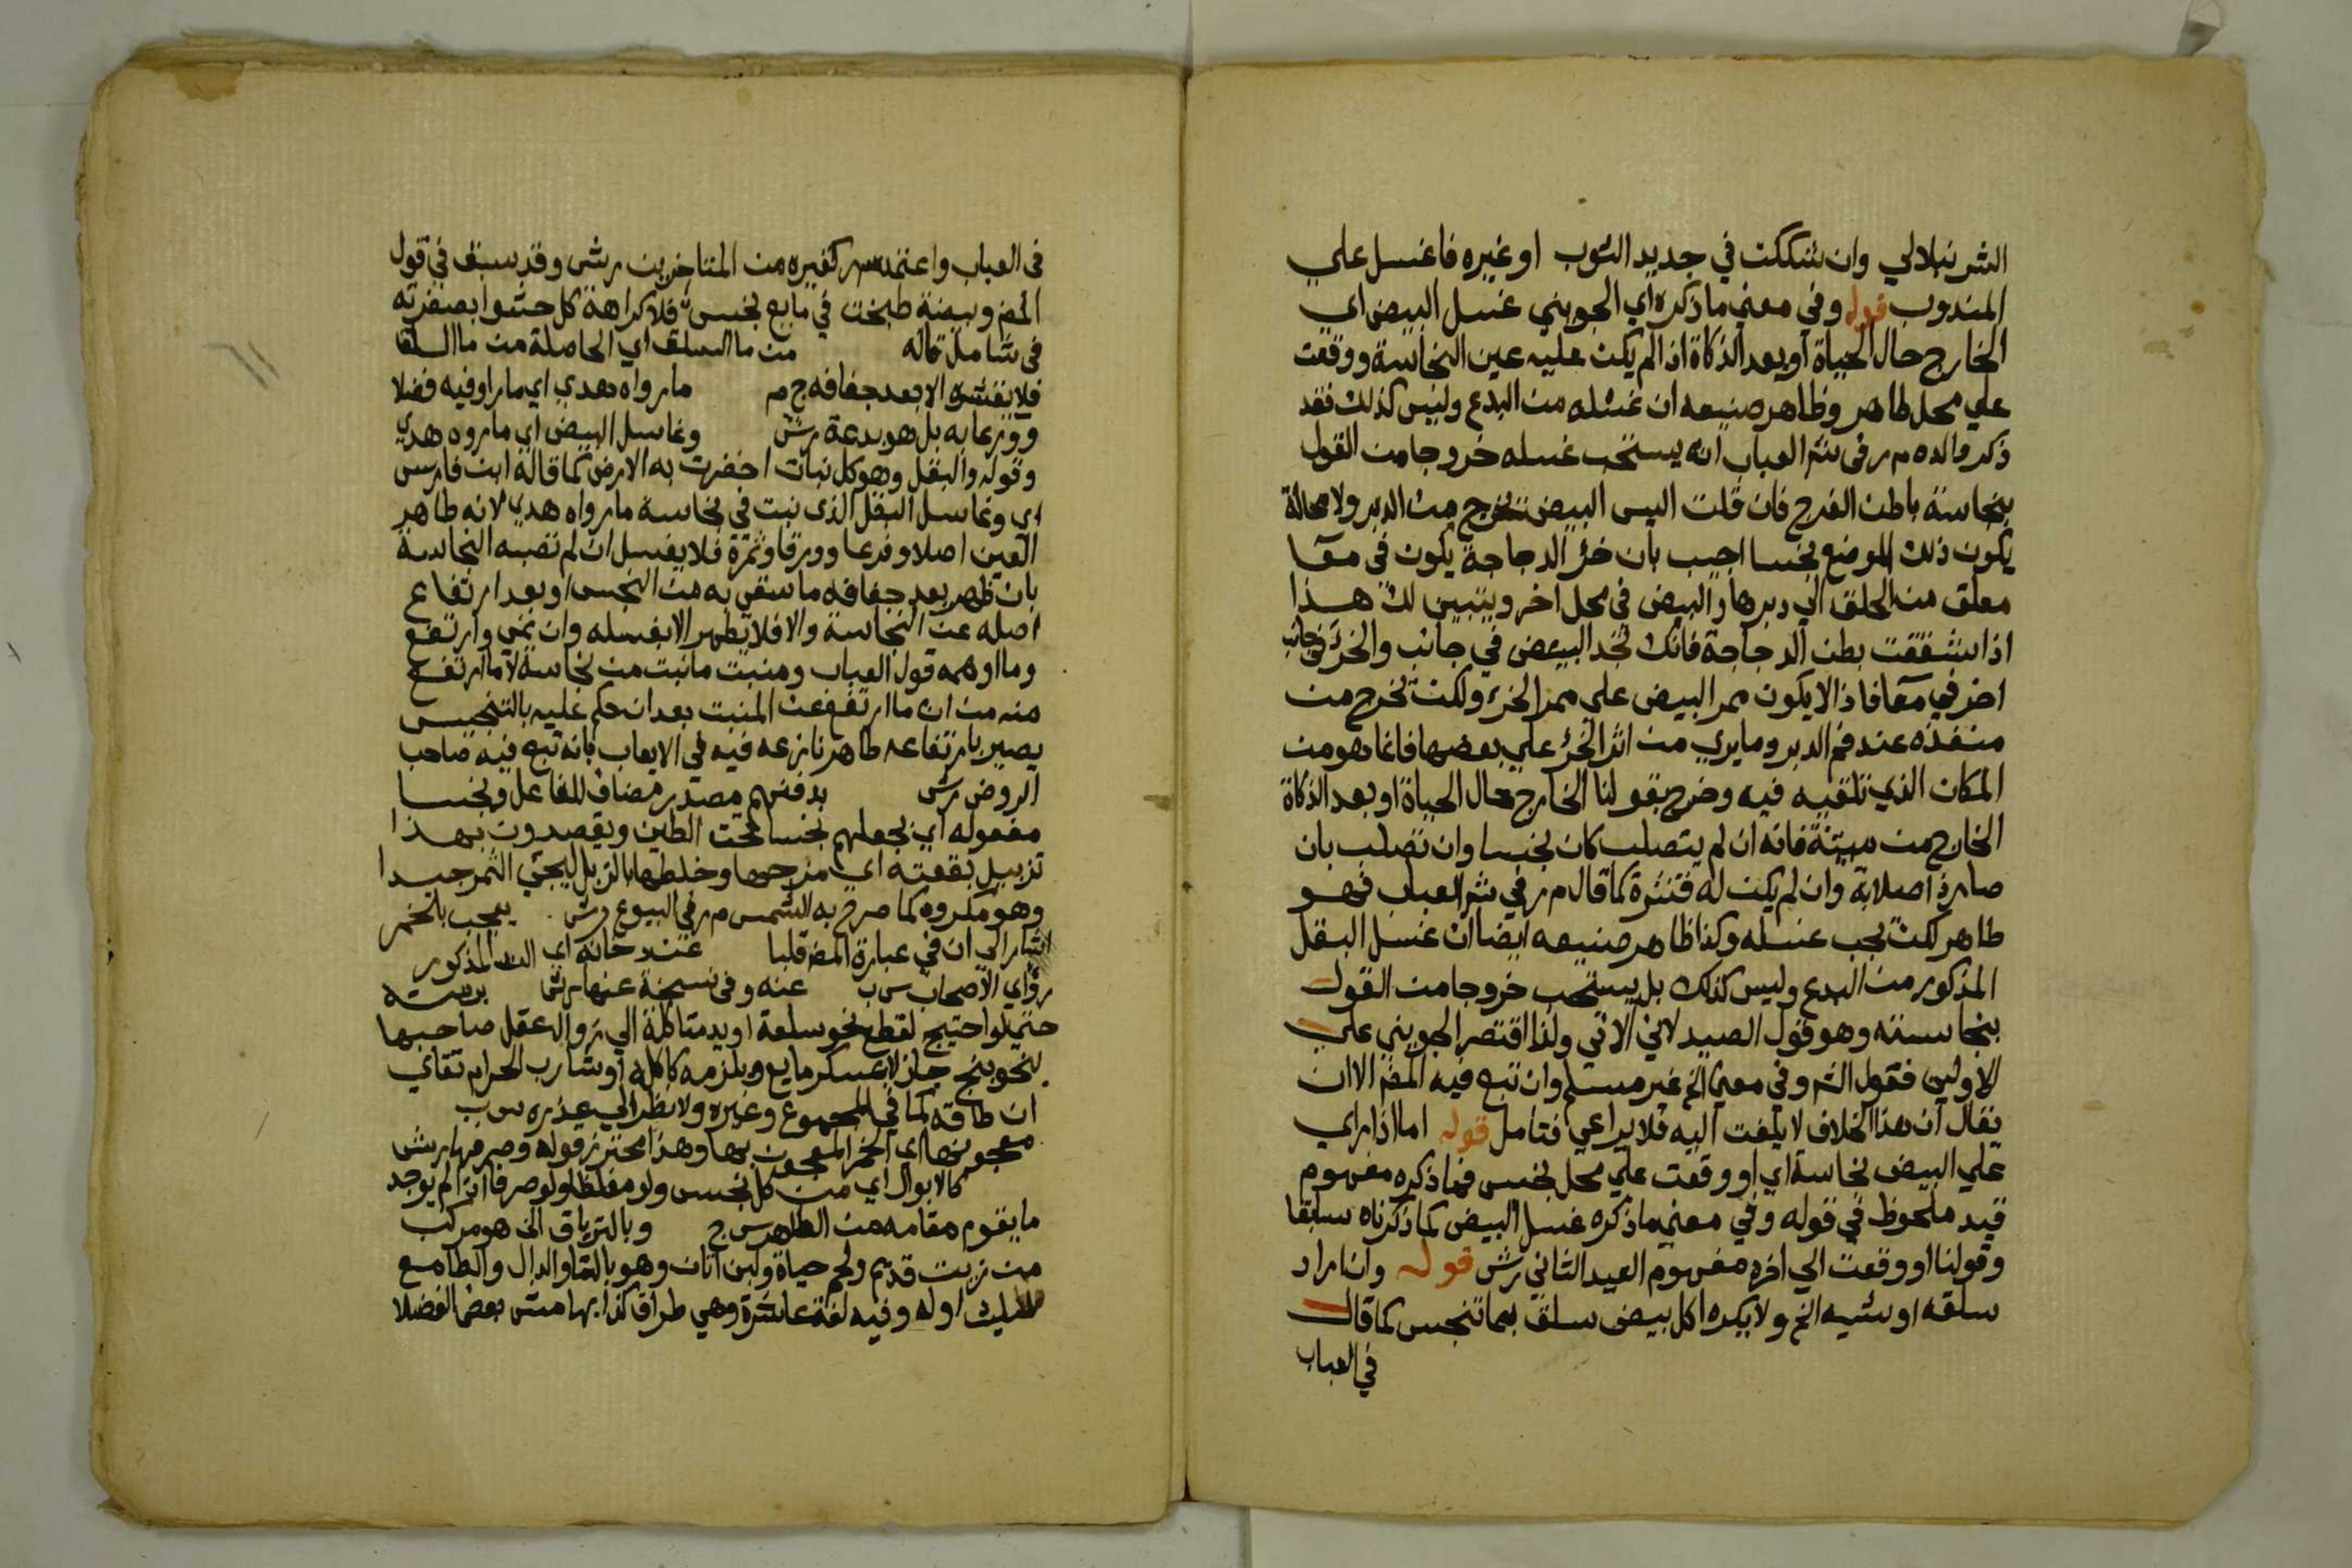 الشرنبلالي وان شككت في جديد الثوب او غيره فاغسل علي
المندوب قوله وفي معني ما ذكره اي الجويني غسل البيض اي
الخارج حال الحياة او بعد الذكاة اذا لم يكن عليه عين النجاسة ووقعت
علي محل طاهر وظاهر صنيعه ان غسله من البدع وليس كذلك فقد
ذكر والده م ر في شر العباب انه يستحب غسله خروجا من القول
بنجاسة باطن الفرج فان قلت اليس البيض تخرج من الدبر ولا محالة
يكون ذلك الموضع نجسا اجيب بان خرؤ الدجاجة يكون في معا
معلق من الحلق الي دبرها والبيض في محل اخر ويتبين لك هذا
اذا شققت بطن الدجاجة فانك تجد البيض في جانب والخرؤ في جانب
اخر في معا فاذا لا يكون ممر البيض علي ممر الخرؤ ولكن تخرج من
منفذه عند فم الدبر وما يري من اثر الخرؤ علي بعضها فانما هو من
المكان الذي تلقيه فيه وخرج بقولنا الخارج حال الحياة او بعد الذكاة
الخارج من ميتة فانه ان لم يتصلب كان نجسا وان تصلب بان
صار ذا صلابة وان لم يكن له قشرة كما قال م ر في شر العباب فهو
طاهر لكن يجب غسله وكذا ظاهر صنيعه ايضا ان غسل البقل
المذكور من البدع وليس كذلك بل يستحب خروجا من القول
بنجاسته وهو قول الصيدلاني الاتي ولذا اقتصر الجويني علي
الاولين فقول الش وفي معني الخ غير مسلم وان تبع فيه المص الا ان
يقال ان هذا الخلاف لا يلفت اليه فلا يراعي فتامل قوله اما اذا راي
علي البيض نجاسة اي او وقعت علي محل نجس فما ذكره مفهوم
قيد ملحوظ في قوله وفي معني ما ذكره غسل البيض كما ذكرناه سابقا
وقولنا او وقعت الي اخره مفهوم القيد الثاني رش قوله وان اراد
سلقه او شيه الخ ولا يكره اكل بيض سلق بما تنجس كما قال
في العباب
في العباب واعتمده سم كغيره من المتاخرين رش وقد سبق في قول
المص وبيضة طبخت في مايع نجس فلا كراهة كل حشوا بصفرته
في شامل قاله من ما السلق اي الحاصلة من ما السلق
فلا يفتشه الا بعد جفافه ج م ما رواه هدي اي ما راو فيه فضلا
وورعا به بل هو بدعة رش وغاسل البيض اي ما رووه هدي
وقوله والبقل وهو كل نبات اخضرت به الارض كما قاله ابن فارس
اي وغاسل البقل الذي نبت في نجاسة ما رواه هدي لانه طاهر
العين اصلا وفرعا وورقا وثمرة فلا يغسل ان لم تصبه النجاسة
بان ظهر بعد جفافه ما سقي به من النجس او بعد ارتفاع
اصله عن النجاسة والا فلا يطهر الا بغسله وان نمي وارتفع
وما اوهمه قول العباب ومنبت ما نبت من نجاسة لا ما ارتفع
منه من ان ما ارتفع عن المنبت بعد ان حكم عليه بالتنجيس
يصير بارتفاعه طاهرا نازعه فيه في الايعاب بانه تبع فيه صاحب
الروض رش بدفنهم مصدر مضاف للفاعل ونجسا
مفعوله اي بجعلهم نجسا تحت الطين ويقصدون بهذا
تزبيل بقعته اي مزجها وخلطها بالزبل ليجئ الثمر جيدا
وهو مكروه كما صرح به الشمس م ر في البيوع رش يعجب بالخمر
اشار الي ان في عبارة المص قلبا عند حانة اي المذكور
رؤاي الاصحاب س ب عنه وفي نسخة عنها رش برمته
حتي لو احتيج لقطع نحو سلعة او يد متاكلة الي زوال عقل صاحبها
بنحو بنج جاز لا بمسكر مايع ويلزمه كاكله او شارب الحرام تقاي
ان طاقه كما في المجموع وغيره ولا نظر الي عذره س ب
معجونها اي الخمر المعجون بها وهذا محترز قوله وصرفها رش
كالابوال اي من كل نجس ولو مغلظا ولو صرفا اذا لم يوجد
ما يقوم مقامه من الطاهر س ج وبالترياق الخ هو مركب
من زيت قديم ولحم حياة ولبن اتان وهو بالتا والدال والطا مع
تثليث اوله وفيه لغة عاشرة وهي طراق كذا بهامش بعض الفضلا